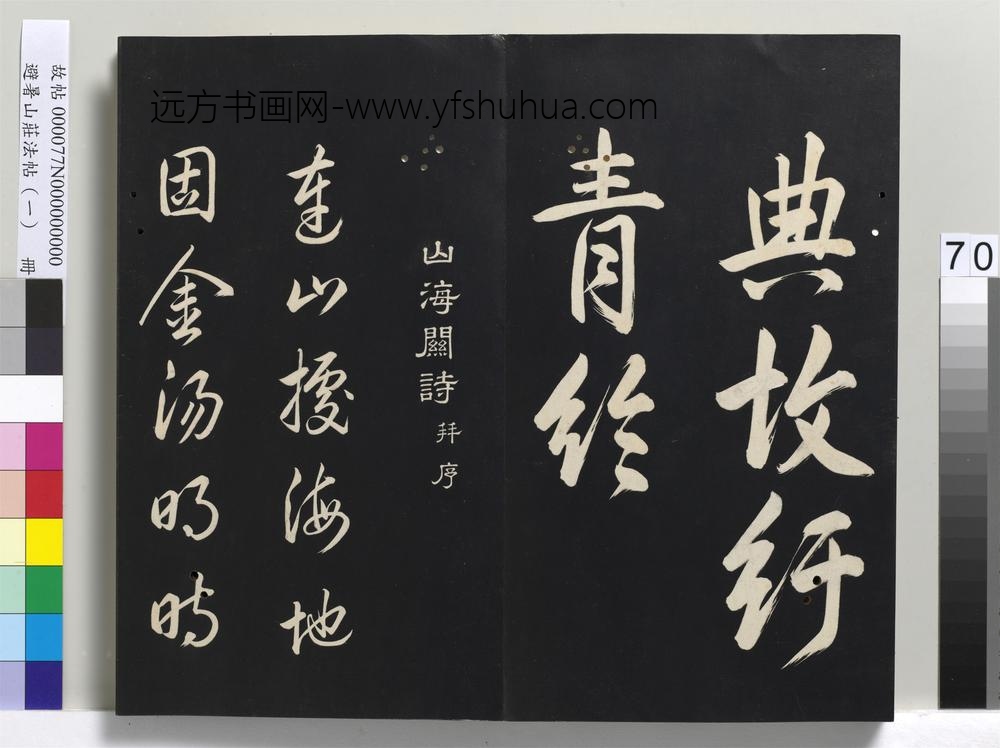 远方书画网-www.yfshuhua.com
典故紆
青綸
山海關詩 并序
連山據海地
固金湯明時
故帖 000077N000000000
避暑山莊法帖（一） 冊
70